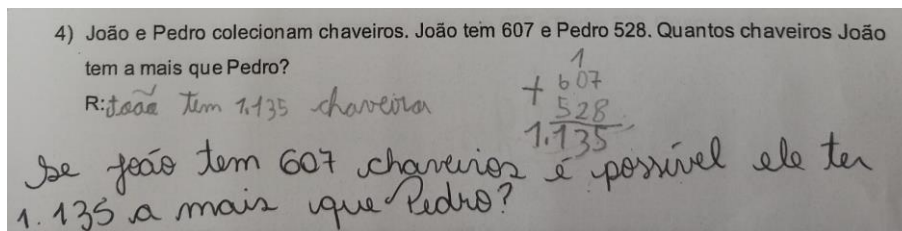 4) João e Pedro colecionam chaveiros. João tem 607 e Pedro 528. Quantos chaveiros João
tem a mais que Pedro?
R: João tem 1.135 chaveiros
1
+ 607
528
1.135
Se João tem 607 chaveiros é possível ele ter
1.135 a mais que Pedro?